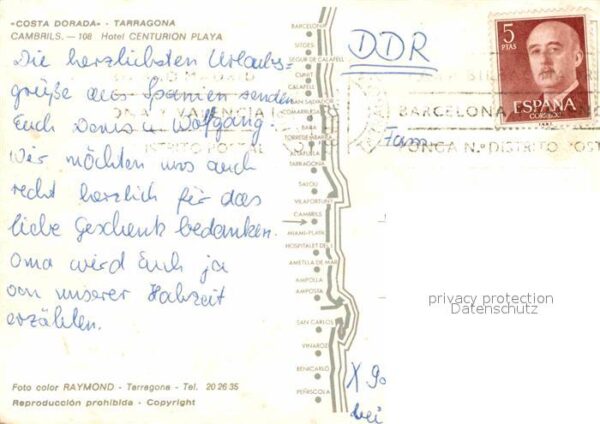 «COSTA DORADA» - TARRAGONA
CAMBRILS. — 108 Hotel CENTURION PLAYA
Die herzlichsten Urlaubs-
grüße aus Spanien senden
Euch Doris u. Wolfgang.
Wir möchten uns auch
recht herzlich für das
liebe Geschenk bedanken.
Oma wird Euch ja
von unserer Hochzeit
erzählen.
Foto color RAYMOND - Tarragona - Tel. 20 26 35
Reproducción prohibida - Copyright
BARCELONA
SITGES
SEGUR DE CALAFELL
CUNIT
CALAFELL
SAN SALVADOR
COMARRUGA
BARA
TORREDEMBARRA
ALTAFULLA
TARRAGONA
SALOU
VILAFORTUNY
CAMBRILS
MIAMI-PLAYA
HOSPITALET DEL I.
AMETLLA DE MAR
AMPOLLA
AMPOSTA
SAN CARLOS
VINAROZ
BENICARLO
PEÑISCOLA
DDR
Fam.
X 90
bei
5
PTAS
ESPAÑA
CORREOS
BARCELONA
PONGA N.º DISTRITO POSTAL
MADRID
VALENCIA
DISTRITO POSTAL
privacy protection
Datenschutz